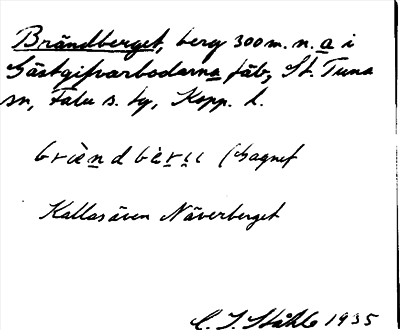 Brändberget, berg 300 m. n. a i
Gästgifvarbodarna fäb, St. Tuna
sn, Falu s. tg, Kopp. l.
(Gagnef
Kallas även Näverberget
C. I. Ståhle 1935